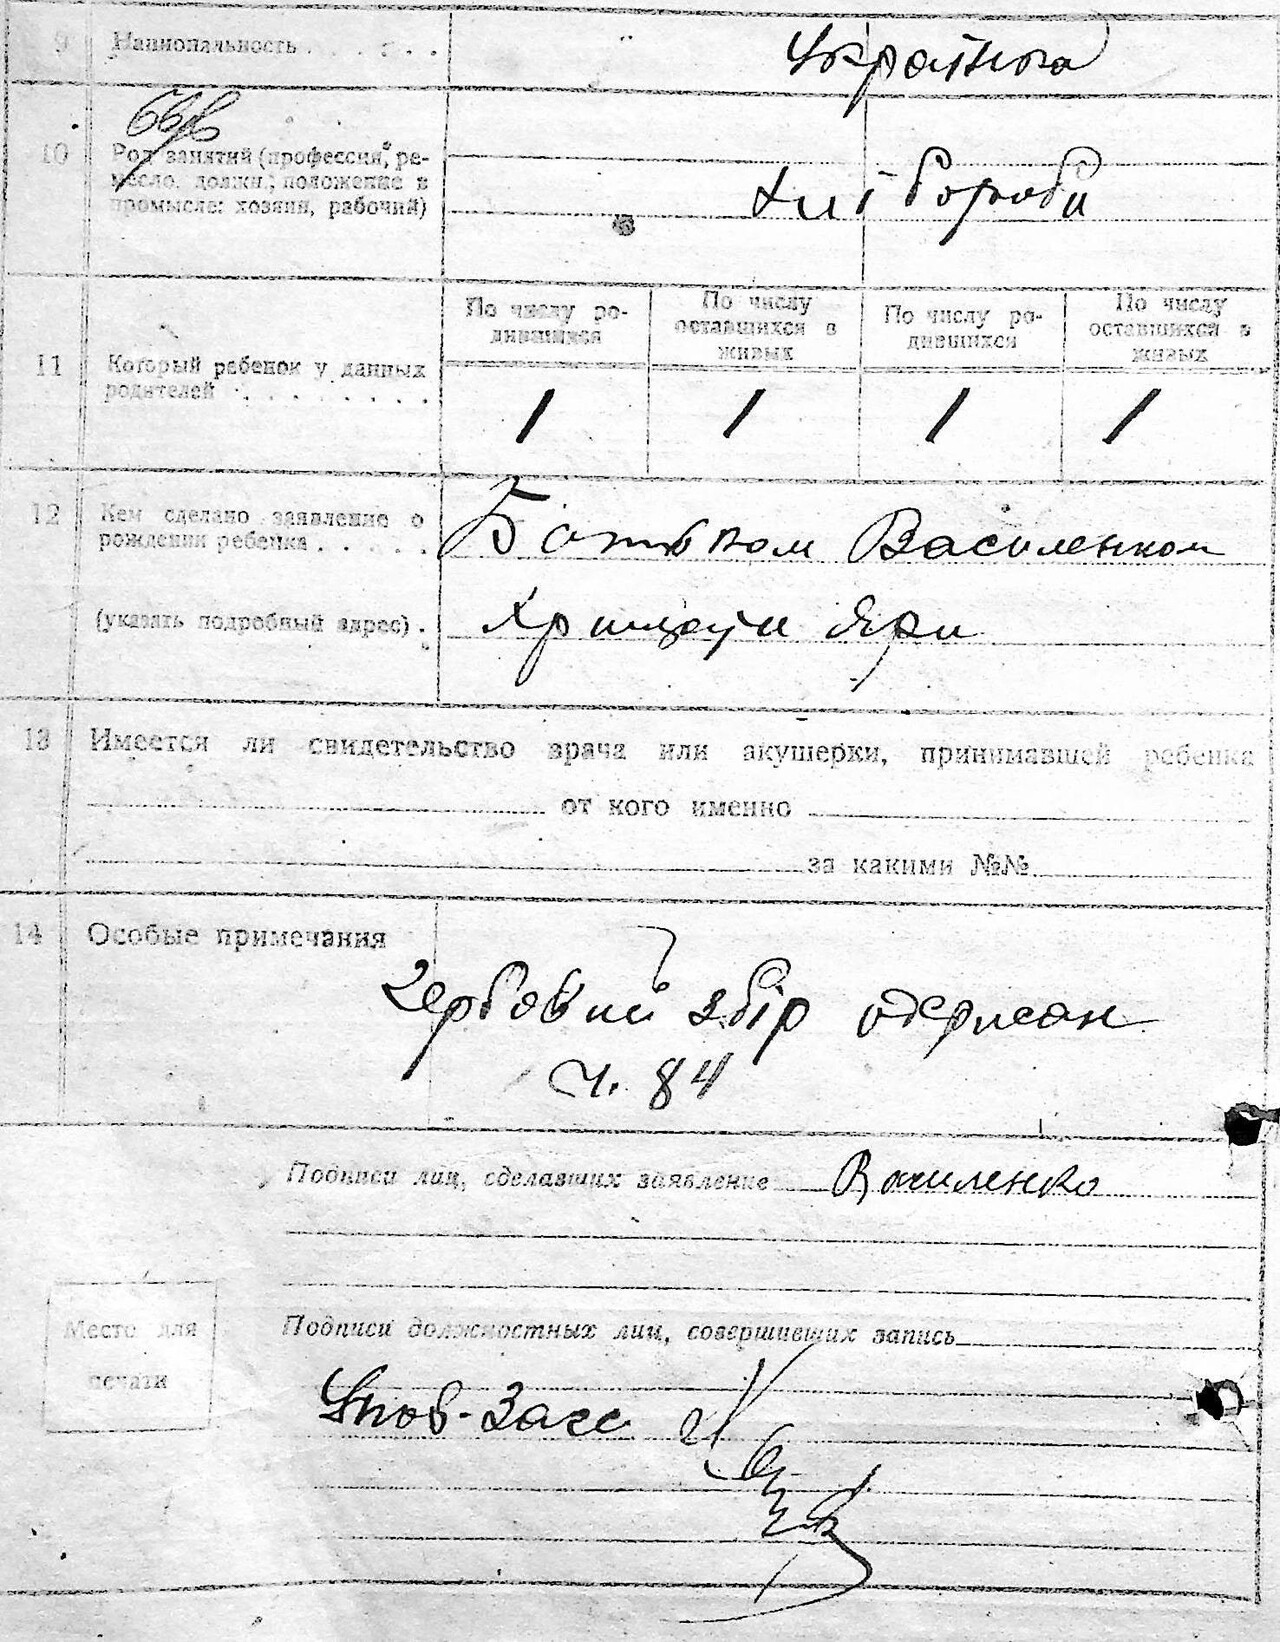 9 Национальность . . . . .
Українська
10 Род занятий (профессия, ре-
месло, должн.; положение в
промысле: хозяин, рабочий)
хлібороби
По числу ро-
дившихся
По числу
оставшихся в
живых
По числу ро-
дившихся
По числу
оставшихся в
живых
11 Который ребенок у данных
родителей . . . . . . . .
1 1 1 1
12 Кем сделано заявление о
рождении ребенка . . . . .
Батьком Василенком
(указать подробный адрес) .
Яри
13 Имеется ли свидетельство врача или акушерки, принимавшей ребенка
от кого именно
за какими №№
14 Особые примечания
Гербовий збір одержан
ч. 84
Подписи лиц, сделавших заявление Василенко
Подписи должностных лиц, совершивших запись
Место для
печати
Упов. Загс